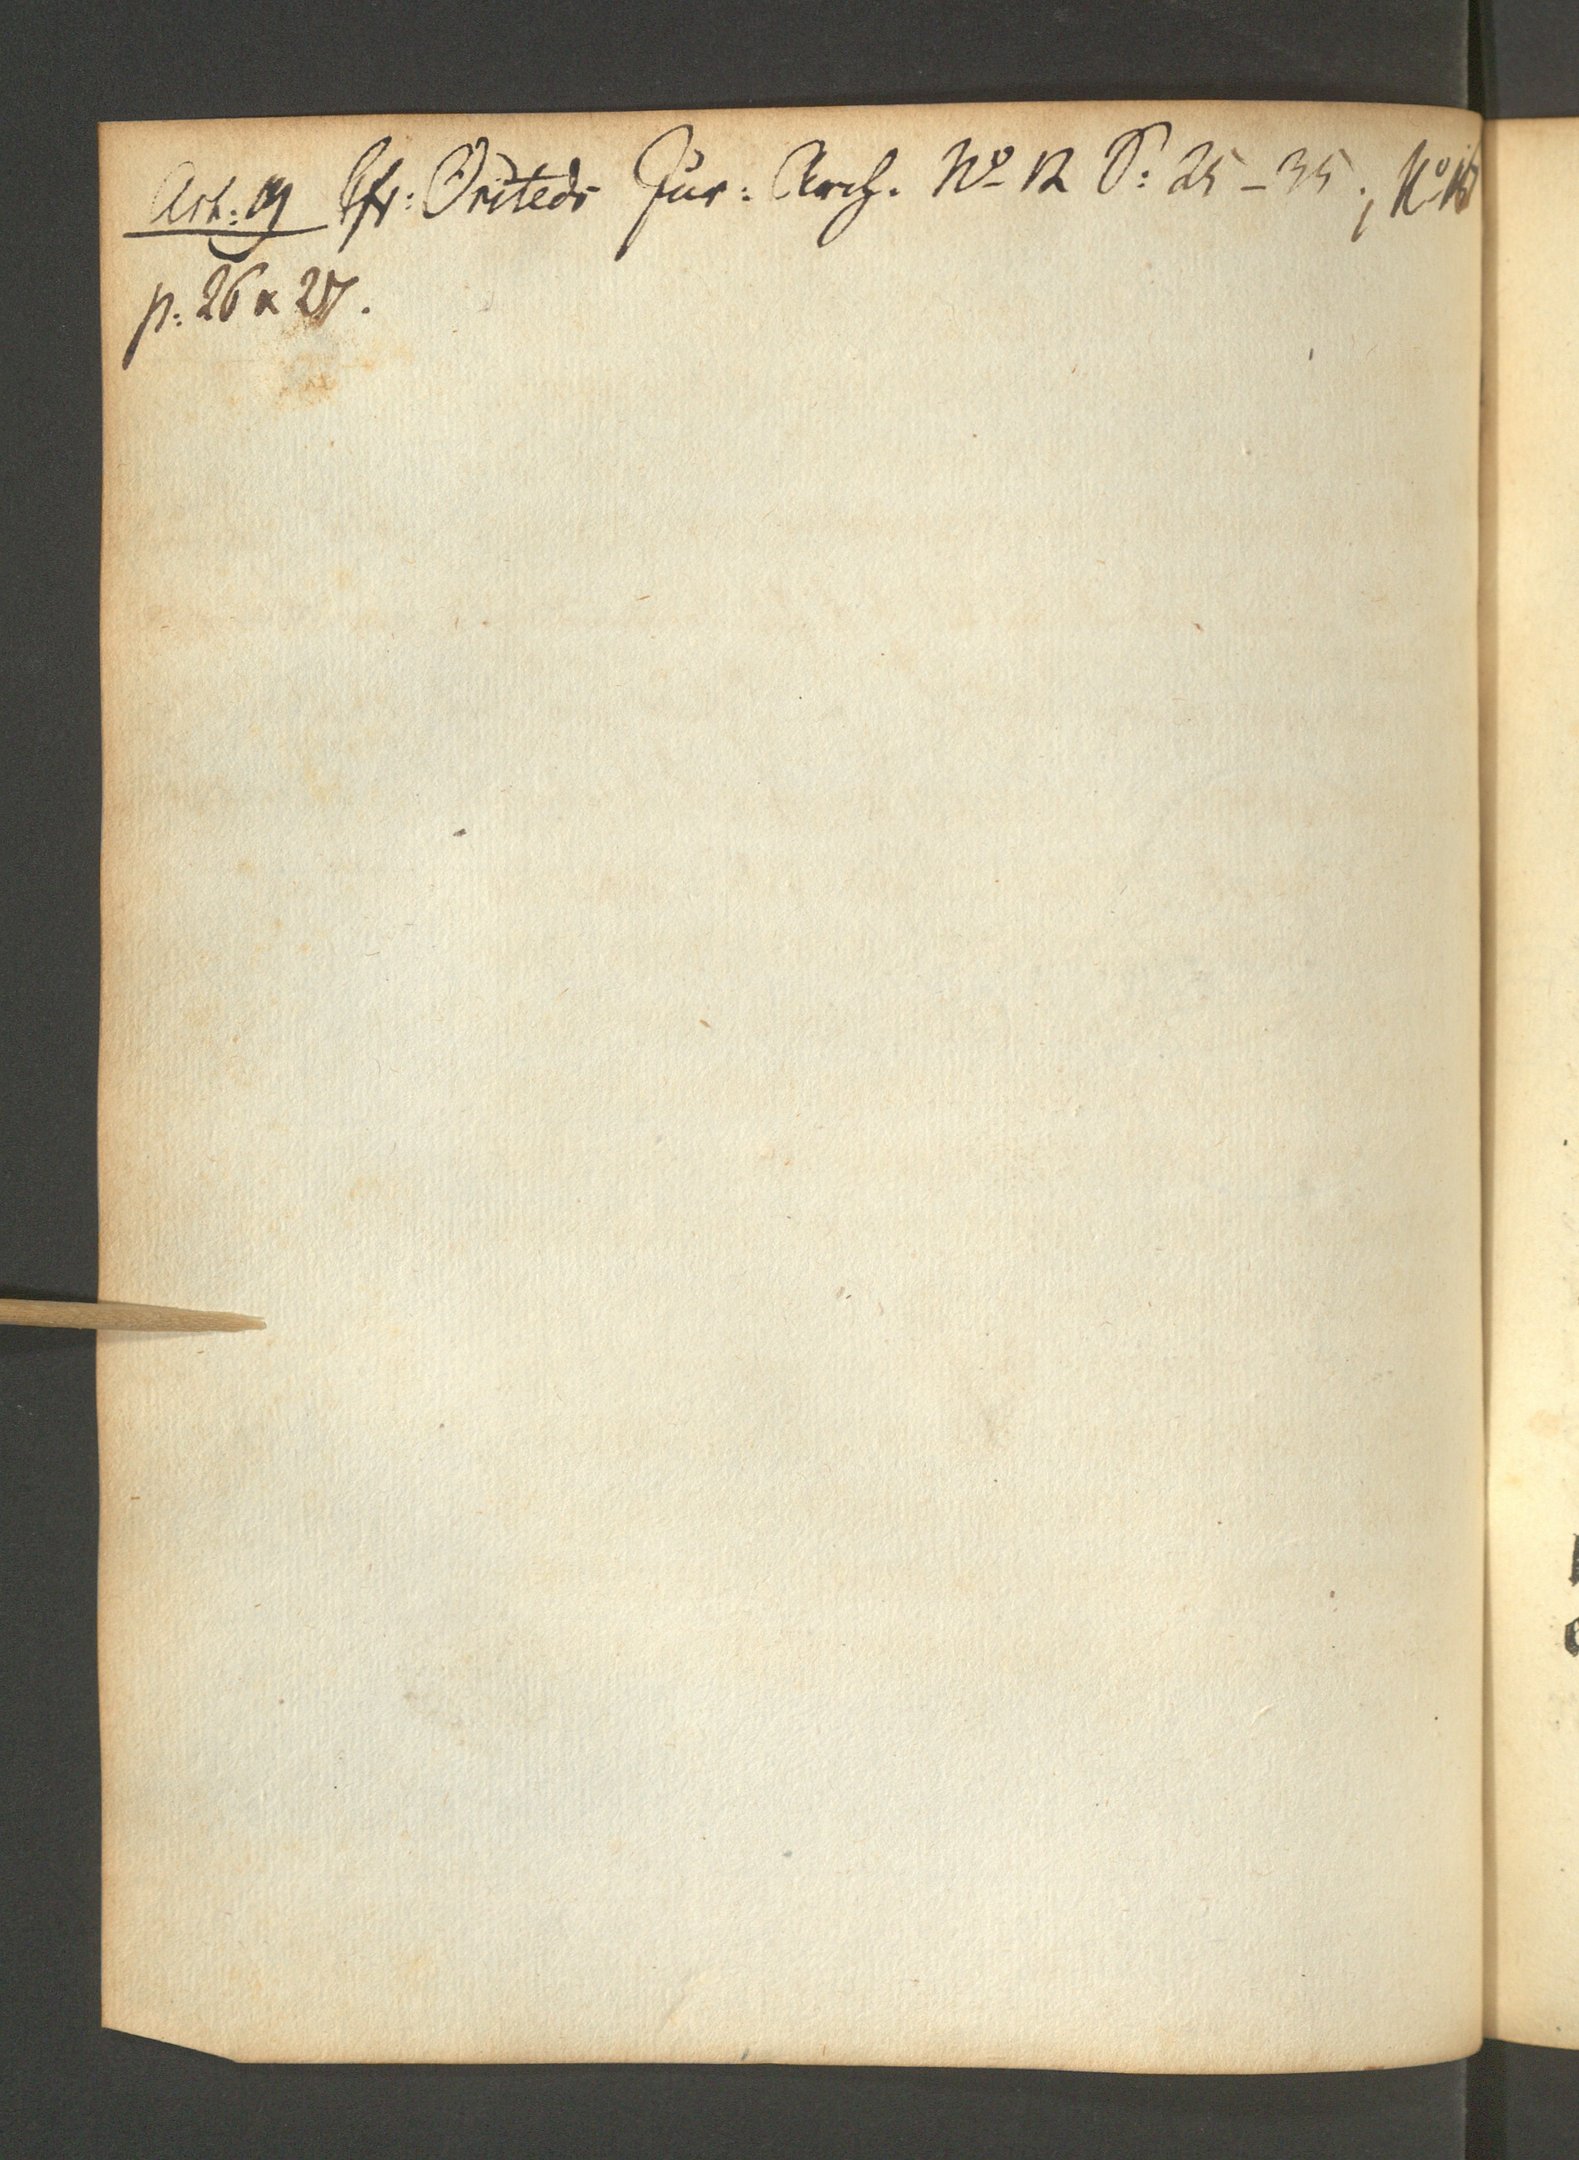 Art: 19 Cfr: Ørsteds Jur: Arch. No 12 S: 25-35; No 15
p: 26 & 27.